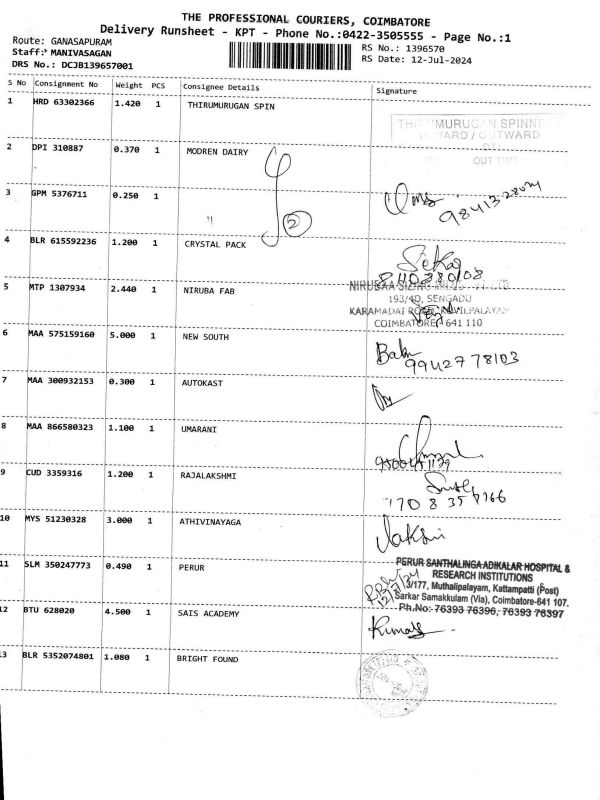 THE PROFESSIONAL COURIERS, COIMBATORE
Delivery Runsheet - KPT - Phone No.:0422-3505555 - Page No.:1
Route: GANASAPURAM
Staff: MANIVASAGAN
DRS No.: DCJB139657001
RS No.: 1396570
RS Date: 12-Jul-2024
S No Consignment No Weight PCS Consignee Details Signature
1 HRD 63302366 1.420 1 THIRUMURUGAN SPIN
THIRUMURUGAN SPINNERS
INWARD / OUTWARD
OUT TIME
2 DPI 310887 0.370 1 MODREN DAIRY
3 GPM 5376711 0.250 1 "
2
4 BLR 615592236 1.200 1 CRYSTAL PACK
Sekar
5 MTP 1307934 2.440 1 NIRUBA FAB
193/4D, SENGADU
KARAMADAI ROAD, KOVILPALAYAM
COIMBATORE - 641 110
6 MAA 575159160 5.000 1 NEW SOUTH
Babu
99427 78103
7 MAA 300932153 0.300 1 AUTOKAST
8 MAA 866580323 1.100 1 UMARANI
9 CUD 3359316 1.200 1 RAJALAKSHMI
10 MYS 51230328 3.000 1 ATHIVINAYAGA
11 SLM 350247773 0.490 1 PERUR
PERUR SANTHALINGA ADIKALAR HOSPITAL &
RESEARCH INSTITUTIONS
3/177, Muthalipalayam, Kattampatti (Post)
Sarkar Samakkulam (Via), Coimbatore-641 107.
Ph.No: 76393 76396, 76393 76397
12/7/24
12 BTU 628020 4.500 1 SAIS ACADEMY
Kumar
13 BLR 5352074801 1.080 1 BRIGHT FOUND